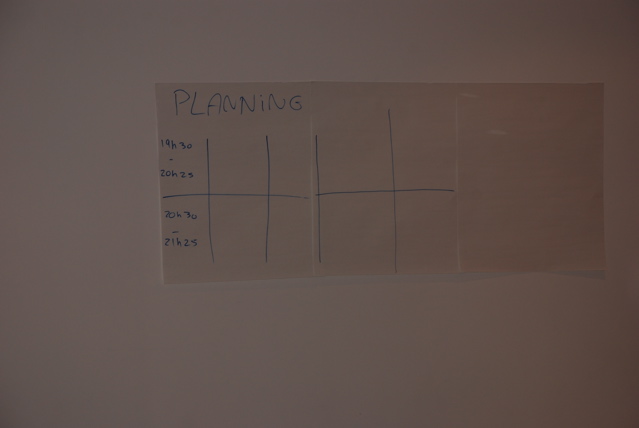 PLANNiNG
19h30
-
20h25
20h30
-
21h25